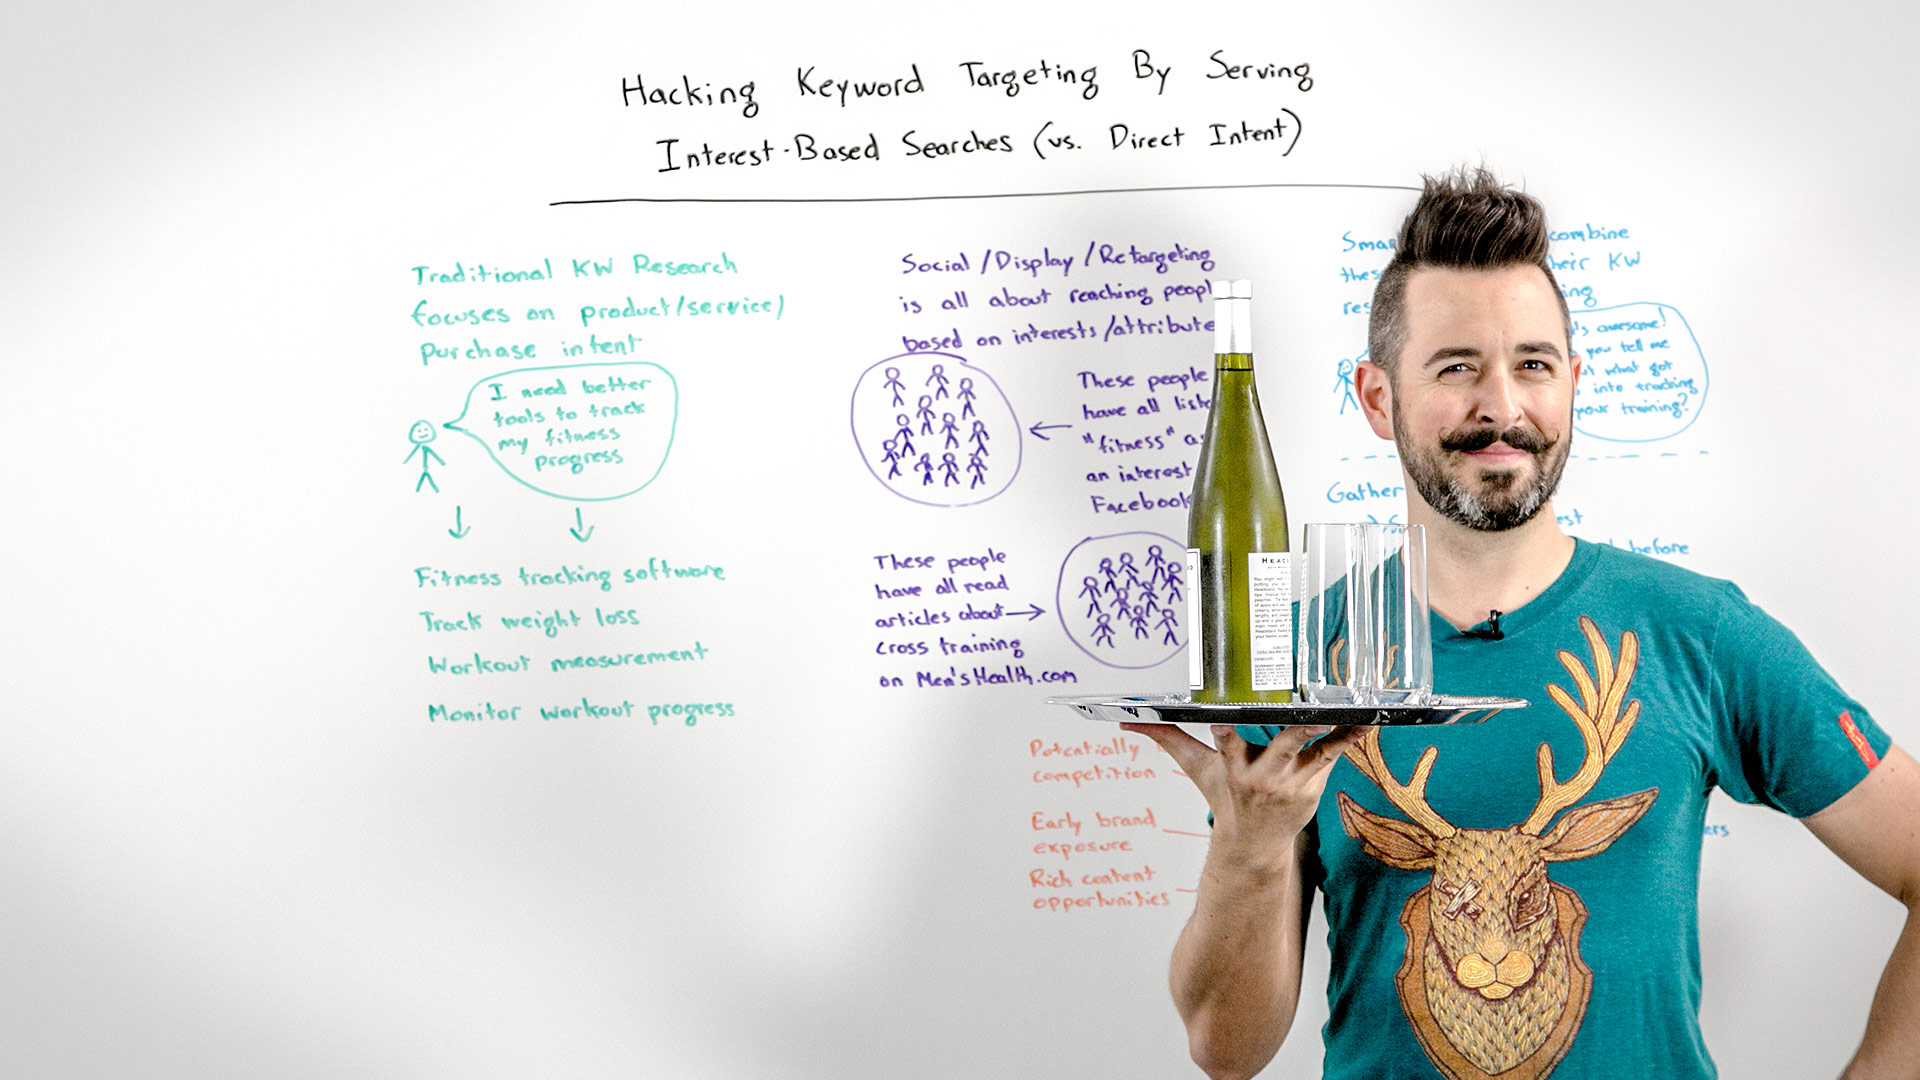 Hacking Keyword Targeting By Serving
Interest-Based Searches (vs. Direct Intent)
Traditional KW Research
focuses on product/service/
purchase intent
I need better
tools to track
my fitness
progress
Fitness tracking software
Track weight loss
Workout measurement
Monitor workout progress
Social/Display/Retargeting
is all about reaching
based on interests/
These people
have all
"fitness"
an interest
Facebook
These people
have all read
articles about
cross training
on Men'sHealth.com
Potentially
competition
Early brand
exposure
Rich content
opportunities
combine
KW
awesome!
you tell me
what got
into tracking
your training?
Gather
before